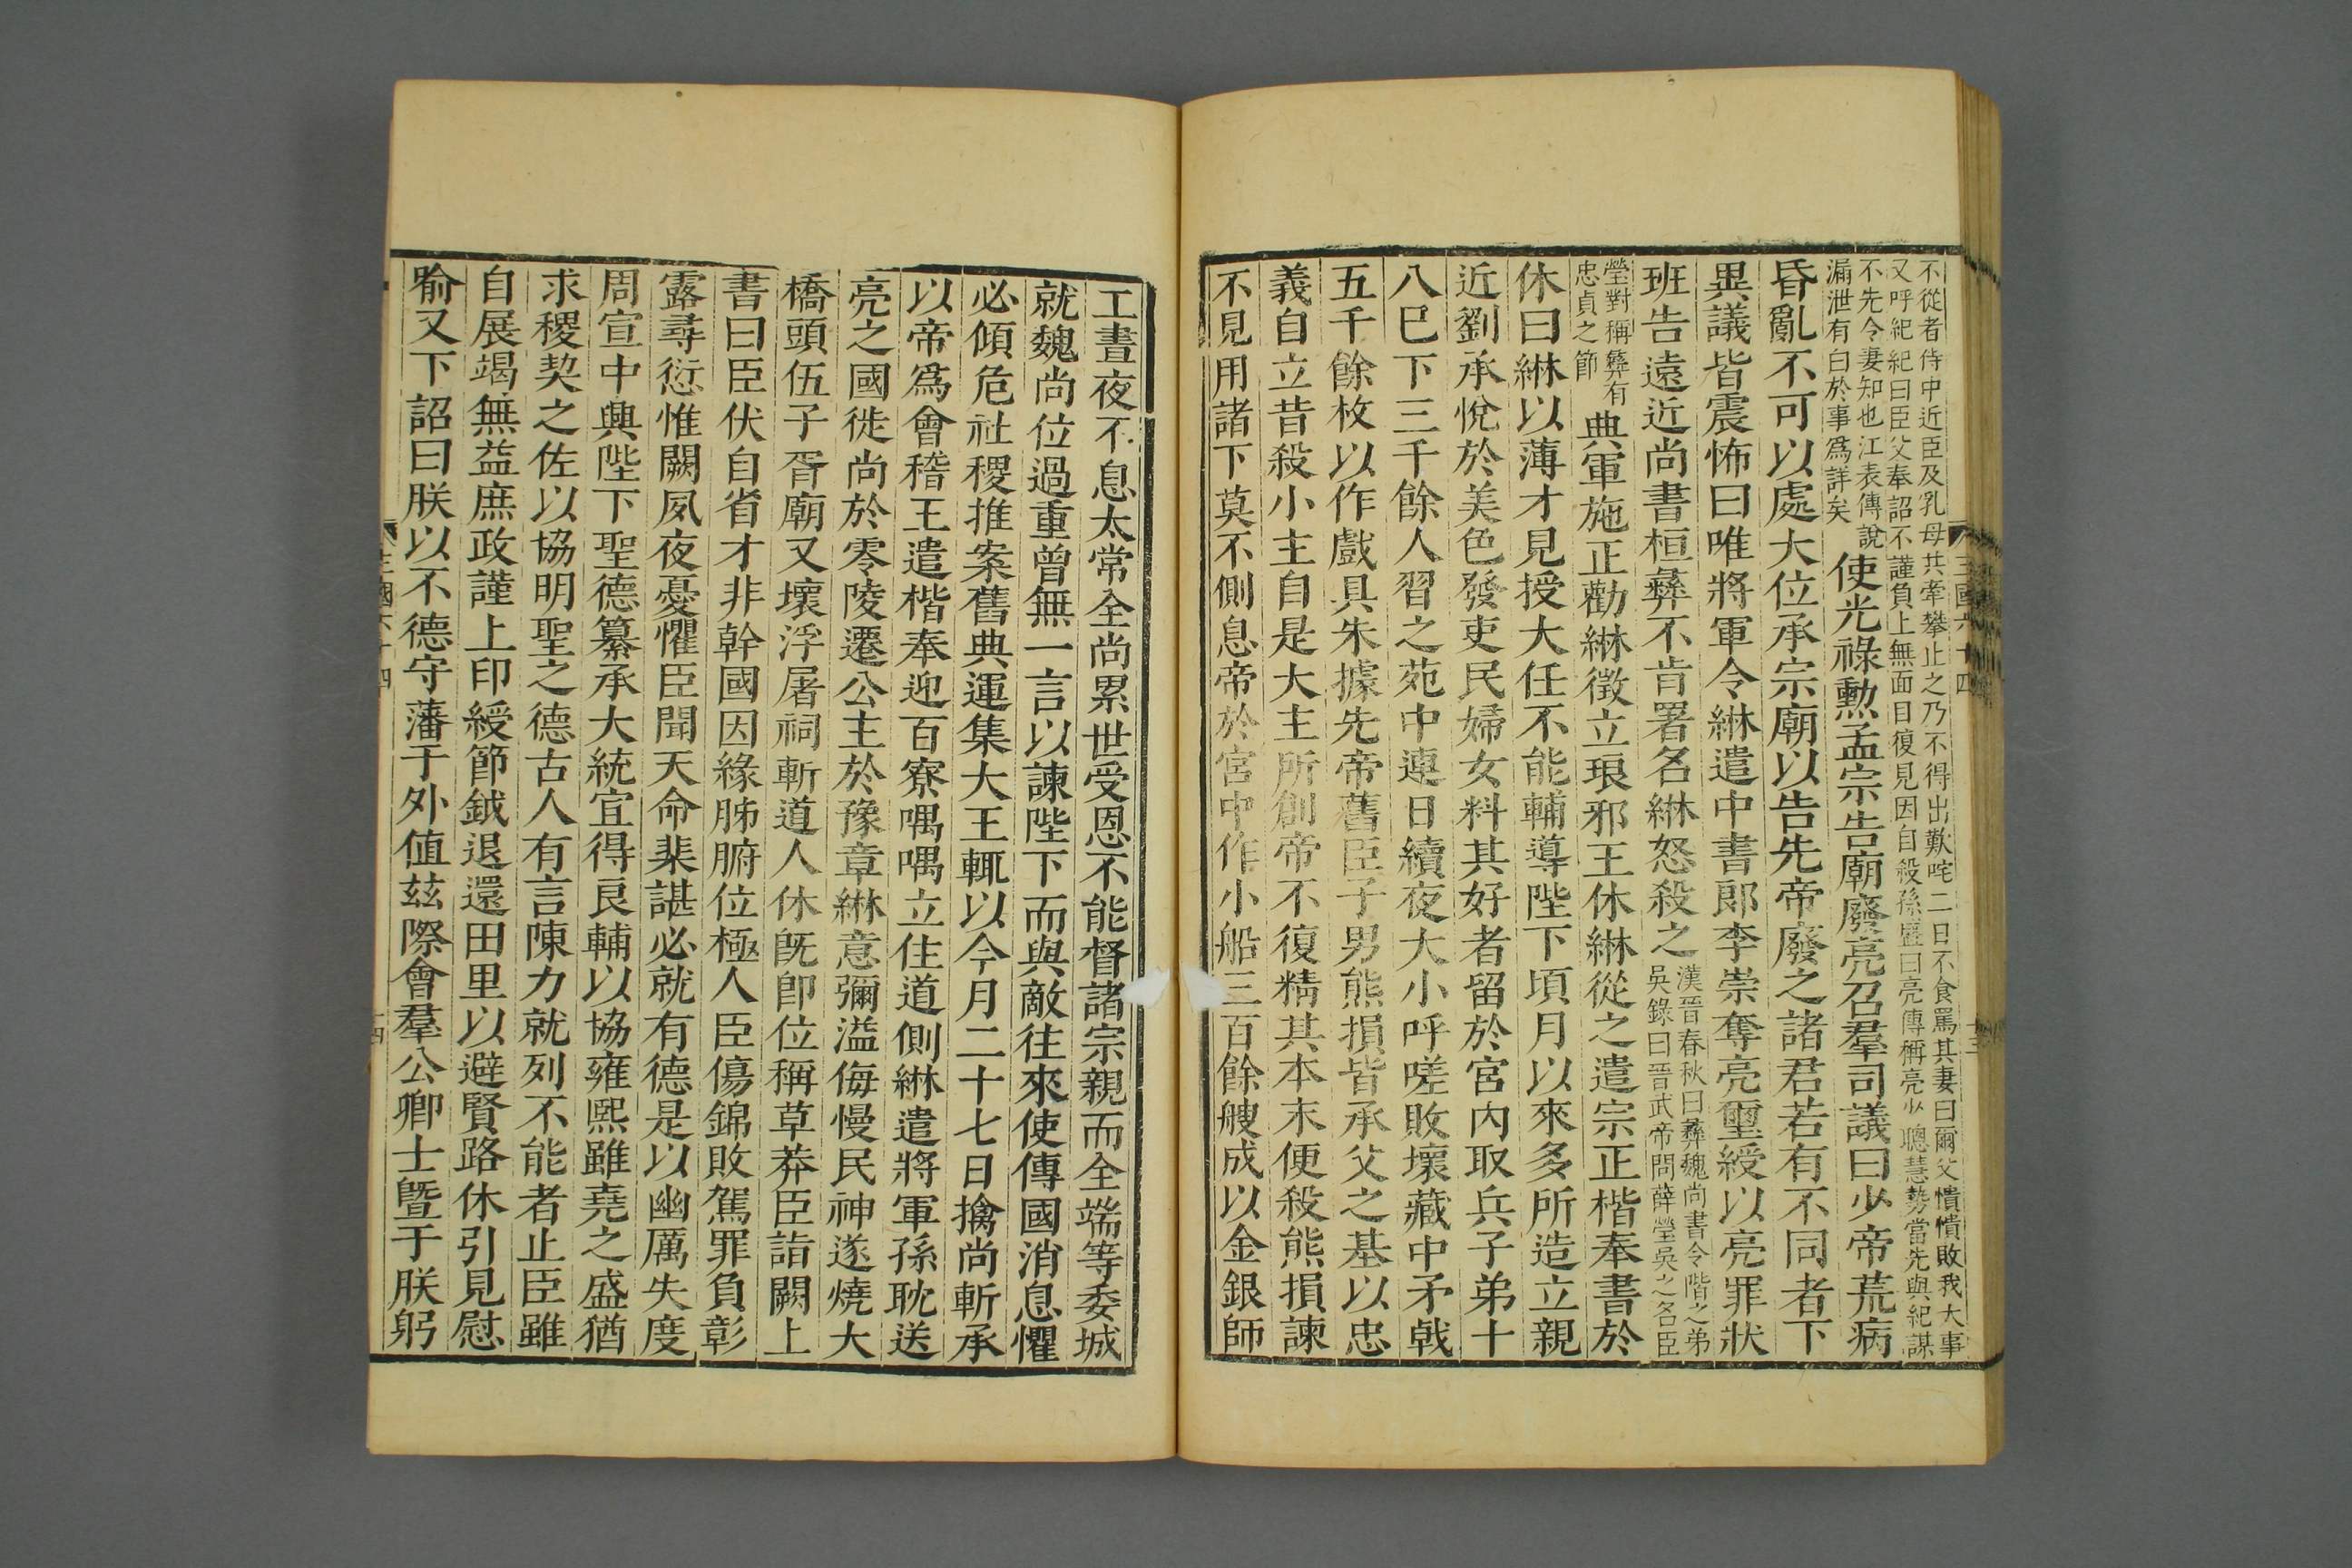 不從者侍中近臣及乳母共牽攀止之乃不得出歎咤二日不食罵其妻曰爾父憒憒敗我大事
又呼紀紀曰臣父奉詔不謹負上無面目復見因自殺孫盛曰亮傳稱亮少聰慧勢當先與紀謀
不先令妻知也江表傳說
漏泄有白於事爲詳矣
使光祿勲孟宗告廟廢亮召羣司議曰少帝荒病
昏亂不可以處大位承宗廟以告先帝廢之諸君若有不同者下
異議皆震怖曰唯將軍令綝遣中書郎李崇奪亮璽綬以亮罪狀
班告遠近尚書桓彝不肯署名綝怒殺之
漢晉春秋曰彝魏尚書令階之弟
吳錄曰晉武帝問薛瑩吳之名臣
瑩對稱彝有
忠貞之節
典軍施正勸綝徵立琅邪王休綝從之遣宗正楷奉書於
休曰綝以薄才見授大任不能輔導陛下頃月以來多所造立親
近劉承悅於美色發吏民婦女料其好者留於宮內取兵子弟十
八已下三千餘人習之苑中連日續夜大小呼嗟敗壞藏中矛戟
五千餘枚以作戲具朱據先帝舊臣子男熊損皆承父之基以忠
義自立昔殺小主自是大主所創帝不復精其本末便殺熊損諫
不見用諸下莫不側息帝於宮中作小船三百餘艘成以金銀師
三國六十四
十三
工晝夜不息太常全尚累世受恩不能督諸宗親而全端等委城
就魏尚位過重曾無一言以諫陛下而與敵往來使傳國消息懼
必傾危社稷推案舊典運集大王輒以今月二十七日擒尚斬承
以帝爲會稽王遣楷奉迎百寮喁喁立住道側綝遣將軍孫耽送
亮之國徙尚於零陵遷公主於豫章綝意彌溢侮慢民神遂燒大
橋頭伍子胥廟又壞浮屠祠斬道人休旣卽位稱草莽臣詣闕上
書曰臣伏自省才非幹國因緣肺腑位極人臣傷錦敗駕罪負彰
露尋愆惟闕夙夜憂懼臣聞天命棐諶必就有德是以幽厲失度
周宣中興陛下聖德纂承大統宜得良輔以協雍熙雖堯之盛猶
求稷契之佐以協明聖之德古人有言陳力就列不能者止臣雖
自展竭無益庶政謹上印綬節鉞退還田里以避賢路休引見慰
喻又下詔曰朕以不德守藩于外值茲際會羣公卿士曁于朕躬
三國六十四
十四